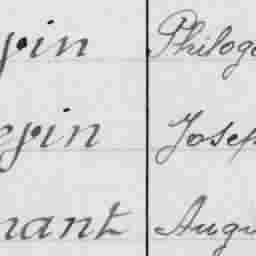 pin Philog
epin Josep
nant Augu